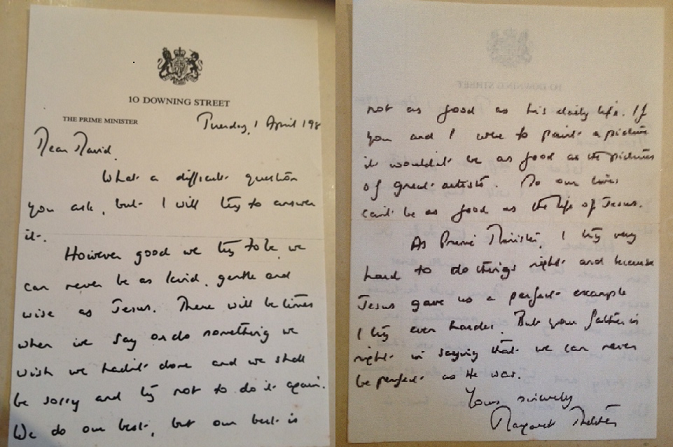 10 DOWNING STREET
THE PRIME MINISTER
Tuesday, 1 April 198
Dear David,
What a difficult question
you ask, but I will try to answer
it.
However good we try to be, we
can never be as kind, gentle and
wise as Jesus. There will be times
when we say or do something we
wish we hadn't done and we shall
be sorry and try not to do it again.
We do our best, but our best is
10 DOWNING STREET
not as good as his daily life. If
you and I were to paint a picture
it wouldn't be as good as the pictures
of great artists. So our lives
can't be as good as the life of Jesus.
As Prime Minister, I try very
hard to do things right and because
Jesus gave us a perfect example
I try ever harder. But your father is
right in saying that we can never
be perfect as He was.
Yours sincerely
Margaret Thatcher